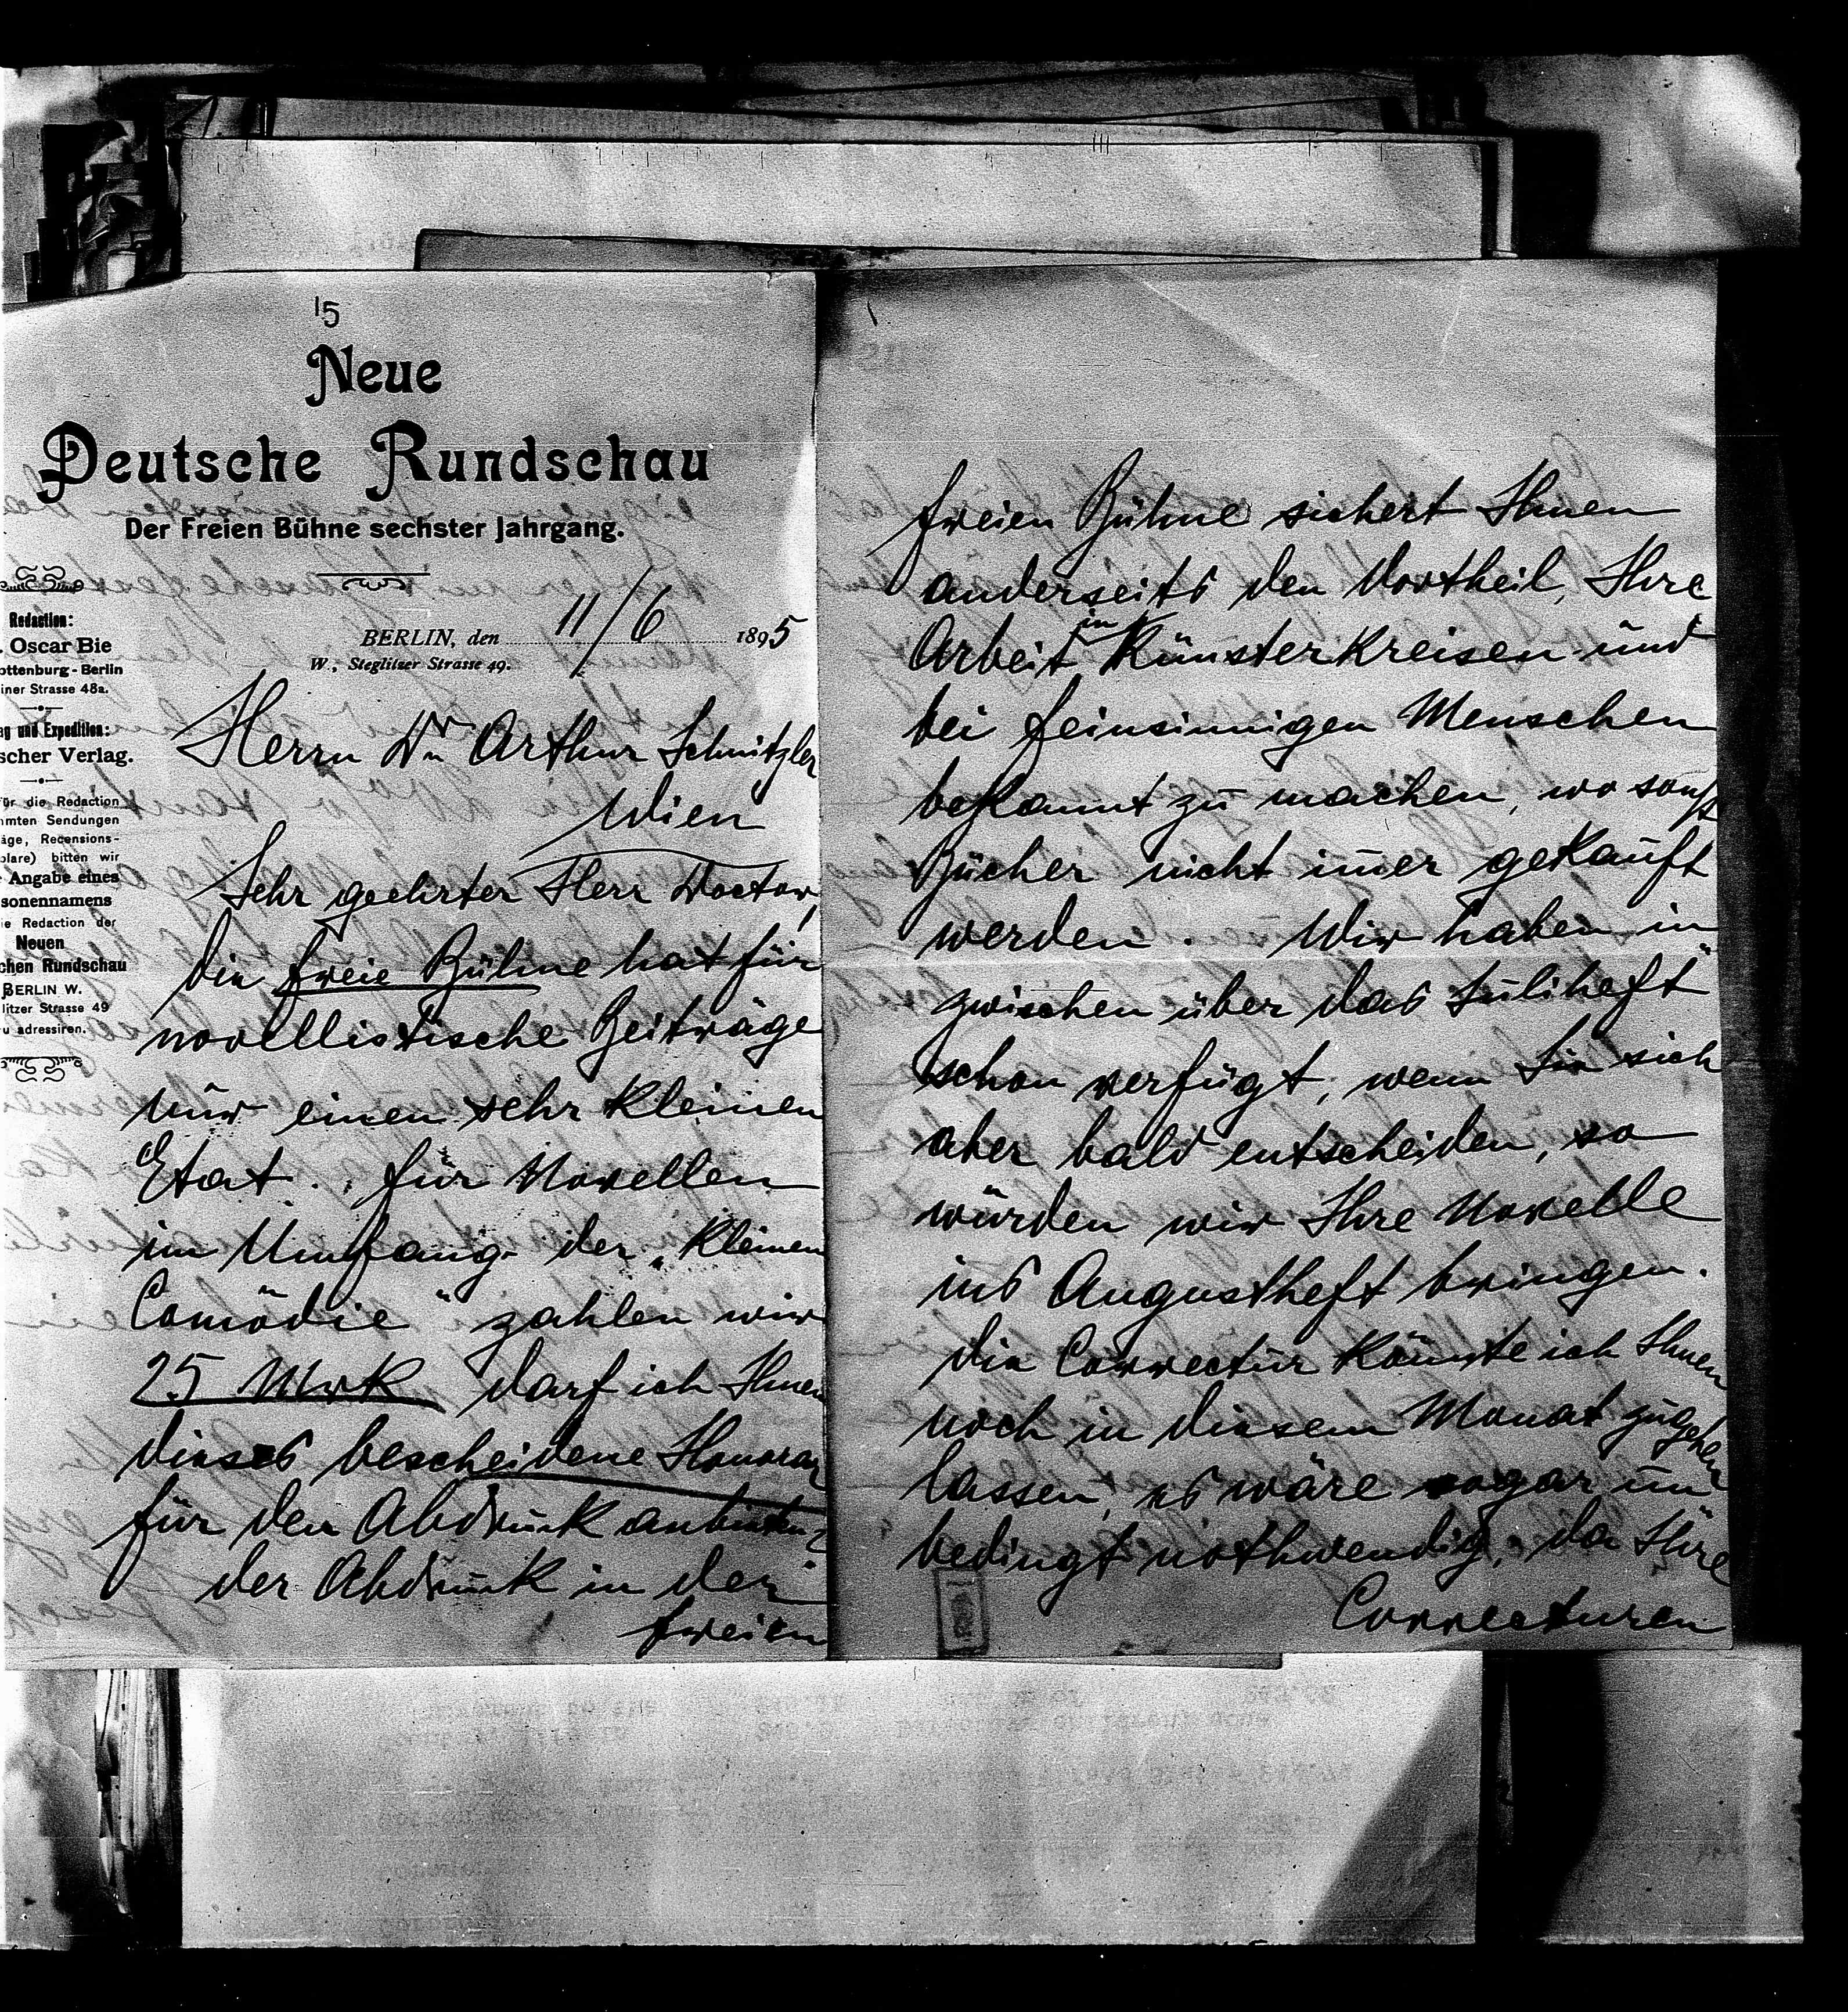 15
Neue
Deutsche Rundschau
Der Freien Bühne sechster Jahrgang.
Redaction:
. Oscar Bie
ottenburg - Berlin
iner Strasse 48a.
ag und Expedition:
scher Verlag.
für die Redaction
mmten Sendungen
äge, Recensions-
plare) bitten wir
e Angabe eines
sonennamens
ie Redaction der
Neuen
chen Rundschau
BERLIN W.
litzer Strasse 49
u adressiren.
BERLIN, den 11/6 1895
W., Steglitzer Strasse 49.
Herrn Dr Arthur Schnitzler
Wien
Sehr geehrter Herr Doctor,
die freie Bühne hat für
novellistische Beiträge
nur einen sehr kleinen
Etat. für Novellen
im Umfang der „kleinen
Comödie" zahlen wir
25 Mrk darf ich Ihnen
dieses bescheidene Honorar
für den Abdruck anbieten?
der Abdruck in der
freien
freien Bühne sichert Ihnen
anderseits den Vortheil, Ihre
Arbeit in Künsterkreisen und
bei feinsinnigen Menschen
bekannt zu machen, wo sonst
Bücher nicht im̄er gekauft
werden. Wir haben in
zwischen über das Juliheft
schon verfügt, wenn Sie sich
aber bald entscheiden, so
würden wir Ihre Novelle
ins Augustheft bringen.
die Correctur könnte ich Ihnen
noch in diesem Monat zugehen
lassen, es wäre sogar un
bedingt nothwendig, da Ihre
Correcturen